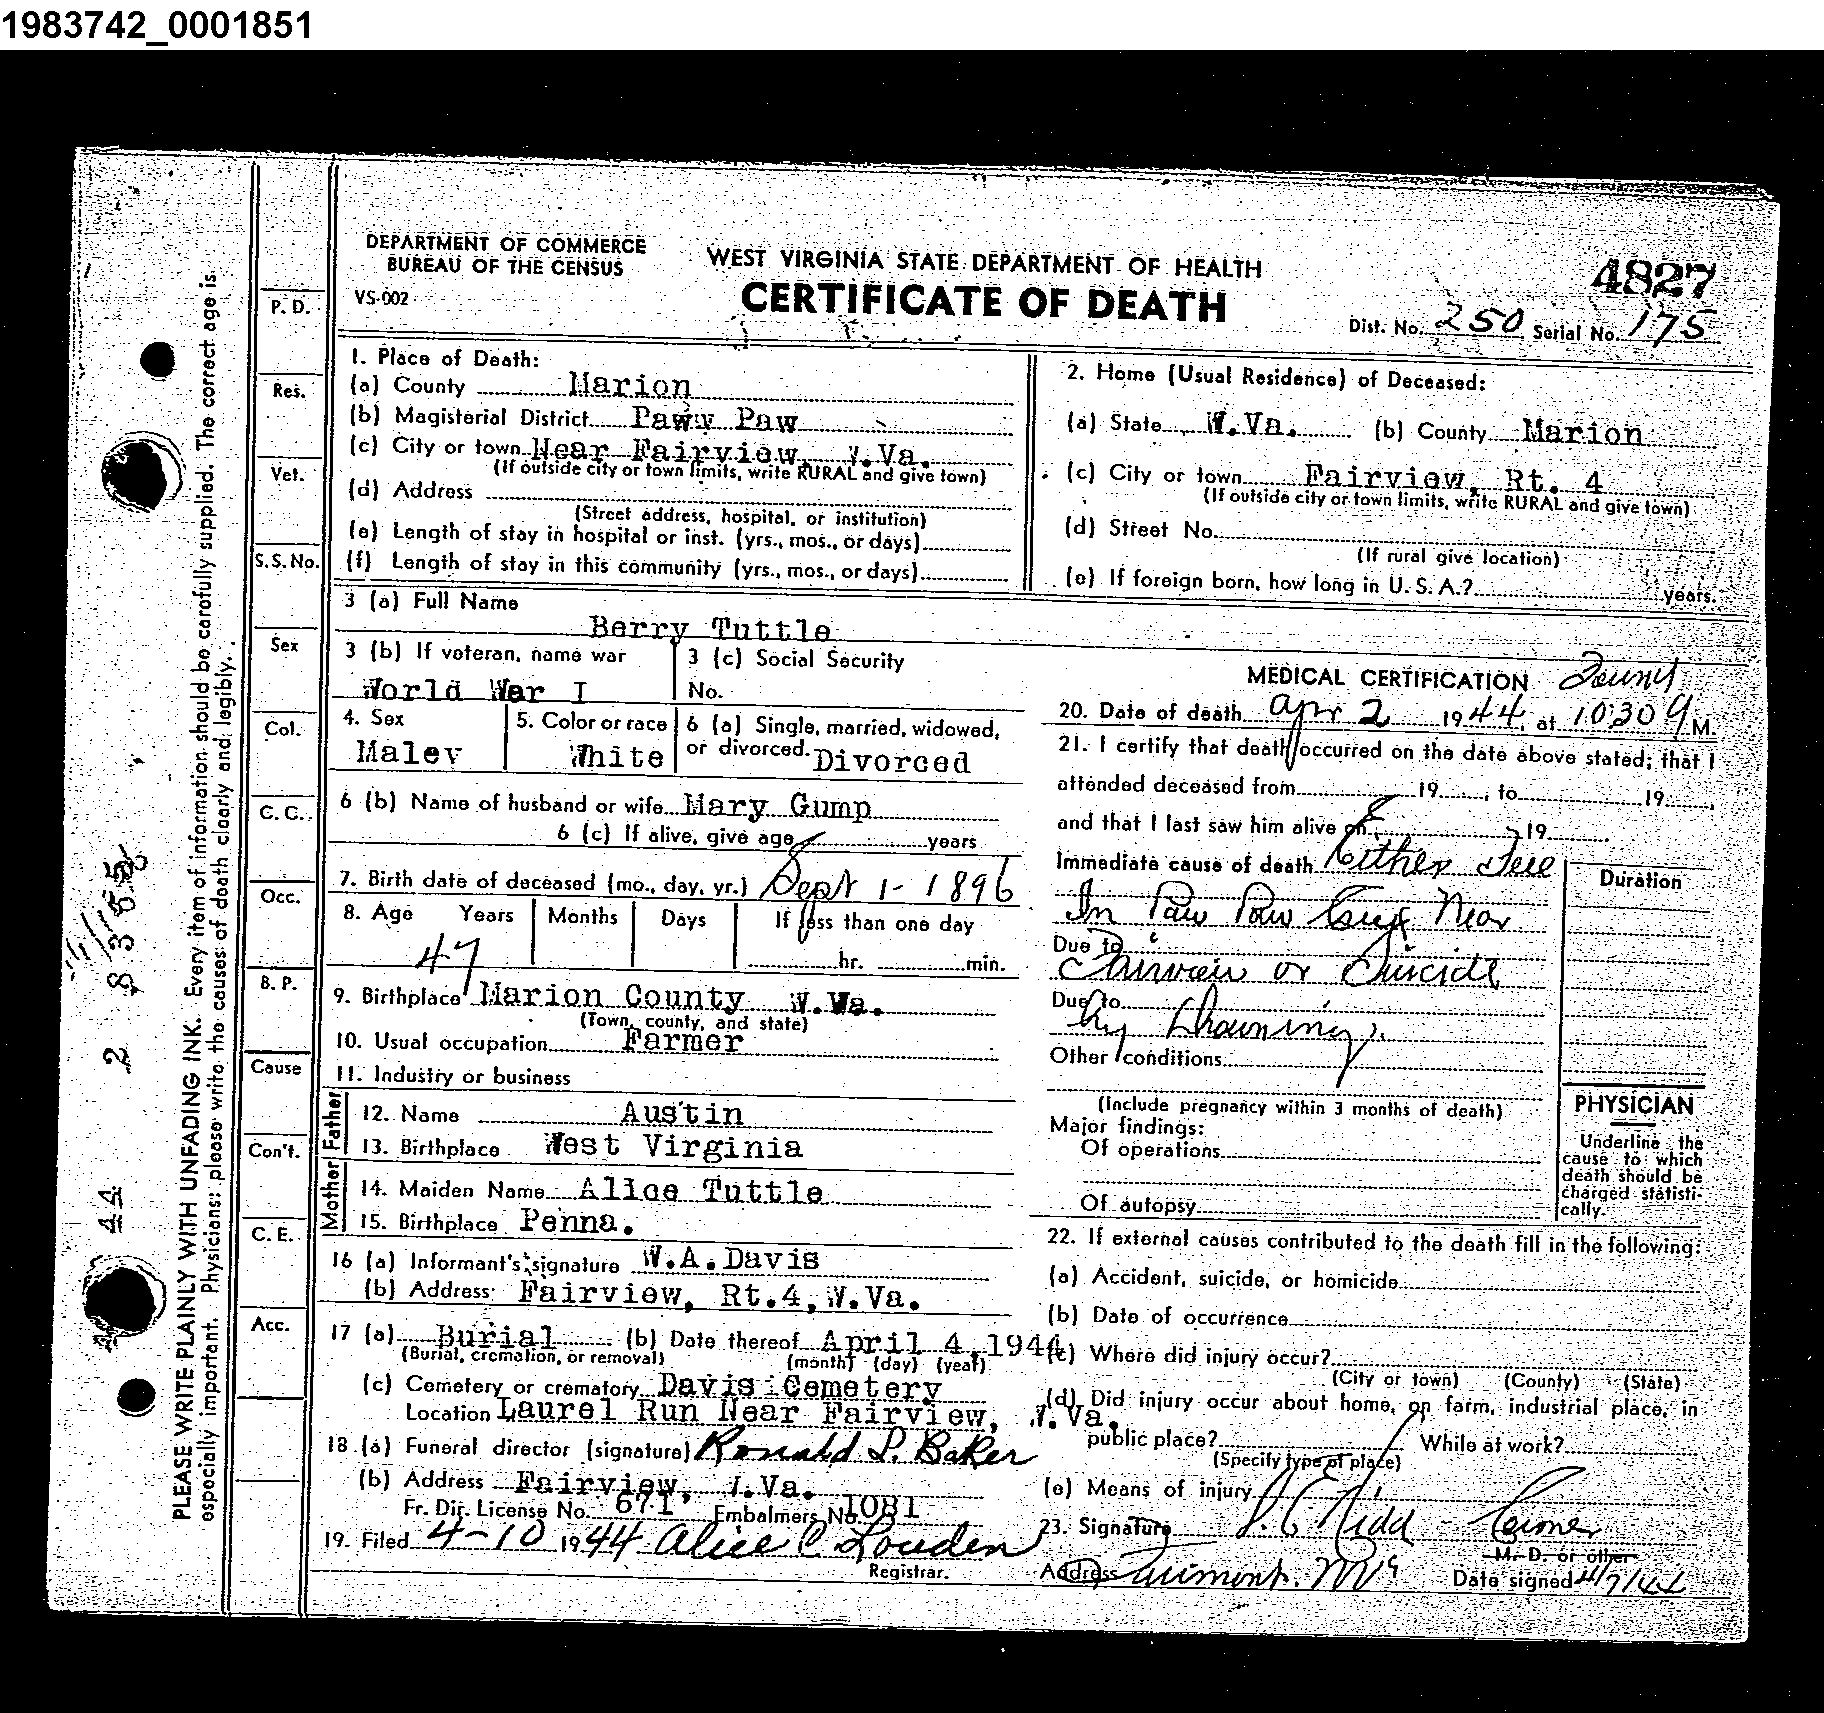 1983742_0001851
DEPARTMENT OF COMMERCE
BUREAU OF THE CENSUS
VS-002
WEST VIRGINIA STATE DEPARTMENT OF HEALTH
CERTIFICATE OF DEATH
4827
Dist. No. 250 Serial No. 175
1. Place of Death:
(a) County Marion
(b) Magisterial District Pawy Paw
(c) City or town Near Fairview, W.Va.
(If outside city or town limits, write RURAL and give town)
(d) Address
(Street address, hospital, or institution)
(e) Length of stay in hospital or inst. (yrs., mos., or days)
(f) Length of stay in this community (yrs., mos., or days)
2. Home (Usual Residence) of Deceased:
(a) State W.Va. (b) County Marion
(c) City or town Fairview, Rt. 4
(If outside city or town limits, write RURAL and give town)
(d) Street No.
(If rural give location)
(e) If foreign born, how long in U. S. A.? years.
3 (a) Full Name
Berry Tuttle
3 (b) If veteran, name war
World War I
3 (c) Social Security
No.
4. Sex
Malev
5. Color or race
White
6 (a) Single, married, widowed,
or divorced. Divorced
6 (b) Name of husband or wife Mary Gump
6 (c) If alive, give age years
7. Birth date of deceased (mo., day, yr.) Sept 1 - 1896
8. Age Years Months Days If less than one day
47 hr. min.
9. Birthplace Marion County W.Va.
(Town, county, and state)
10. Usual occupation Farmer
11. Industry or business
Father
12. Name Austin
13. Birthplace West Virginia
Mother
14. Maiden Name Alice Tuttle
15. Birthplace Penna.
16 (a) Informant's signature W.A.Davis
(b) Address Fairview, Rt.4, W.Va.
17 (a) Burial (b) Date thereof April 4, 1944
(Burial, cremation, or removal) (month) (day) (year)
(c) Cemetery or crematory Davis Cemetery
Location Laurel Run Near Fairview, W.Va.
18 (a) Funeral director (signature) Ronald L. Baker
(b) Address Fairview, W.Va.
Fr. Dir. License No. 671 Embalmers No. 1081
19. Filed 4-10 1944 Alice C Louden
Registrar.
MEDICAL CERTIFICATION Found
20. Date of death Apr 2 1944, at 10:30 A M.
21. I certify that death occurred on the date above stated; that I
attended deceased from 19 , to 19 ,
and that I last saw him alive on , 19
Immediate cause of death Either Fell
In Paw Paw Near
Due to
Fairview or Suicide
Due to
by Drowning.
Other conditions
(Include pregnancy within 3 months of death)
Major findings:
Of operations
Of autopsy
Duration
PHYSICIAN
Underline the
cause to which
death should be
charged statisti-
cally.
22. If external causes contributed to the death fill in the following:
(a) Accident, suicide, or homicide
(b) Date of occurrence
(c) Where did injury occur?
(City or town) (County) (State)
(d) Did injury occur about home, on farm, industrial place, in
public place? While at work?
(Specify type of place)
(e) Means of injury
23. Signature Kidd - Coroner
M. D. or other
Address Fairmont, W Va Date signed 4/7/44
P. D.
Res.
Vet.
S. S. No.
Sex
Col.
C. C.
Occ.
B. P.
Cause
Con't.
C. E.
Acc.
PLEASE WRITE PLAINLY WITH UNFADING INK. Every item of information should be carefully supplied. The correct age is
especially important. Physicians: please write the causes of death clearly and legibly.
44 2